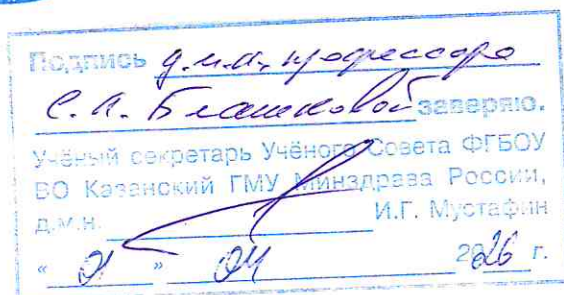 Подпись д.м.н., профессора
С. Л. Блашковой заверяю.
Учёный секретарь Учёного Совета ФГБОУ
ВО Казанский ГМУ Минздрава России,
д.м.н. И.Г. Мустафин
“ 01 ” 04 2026 г.